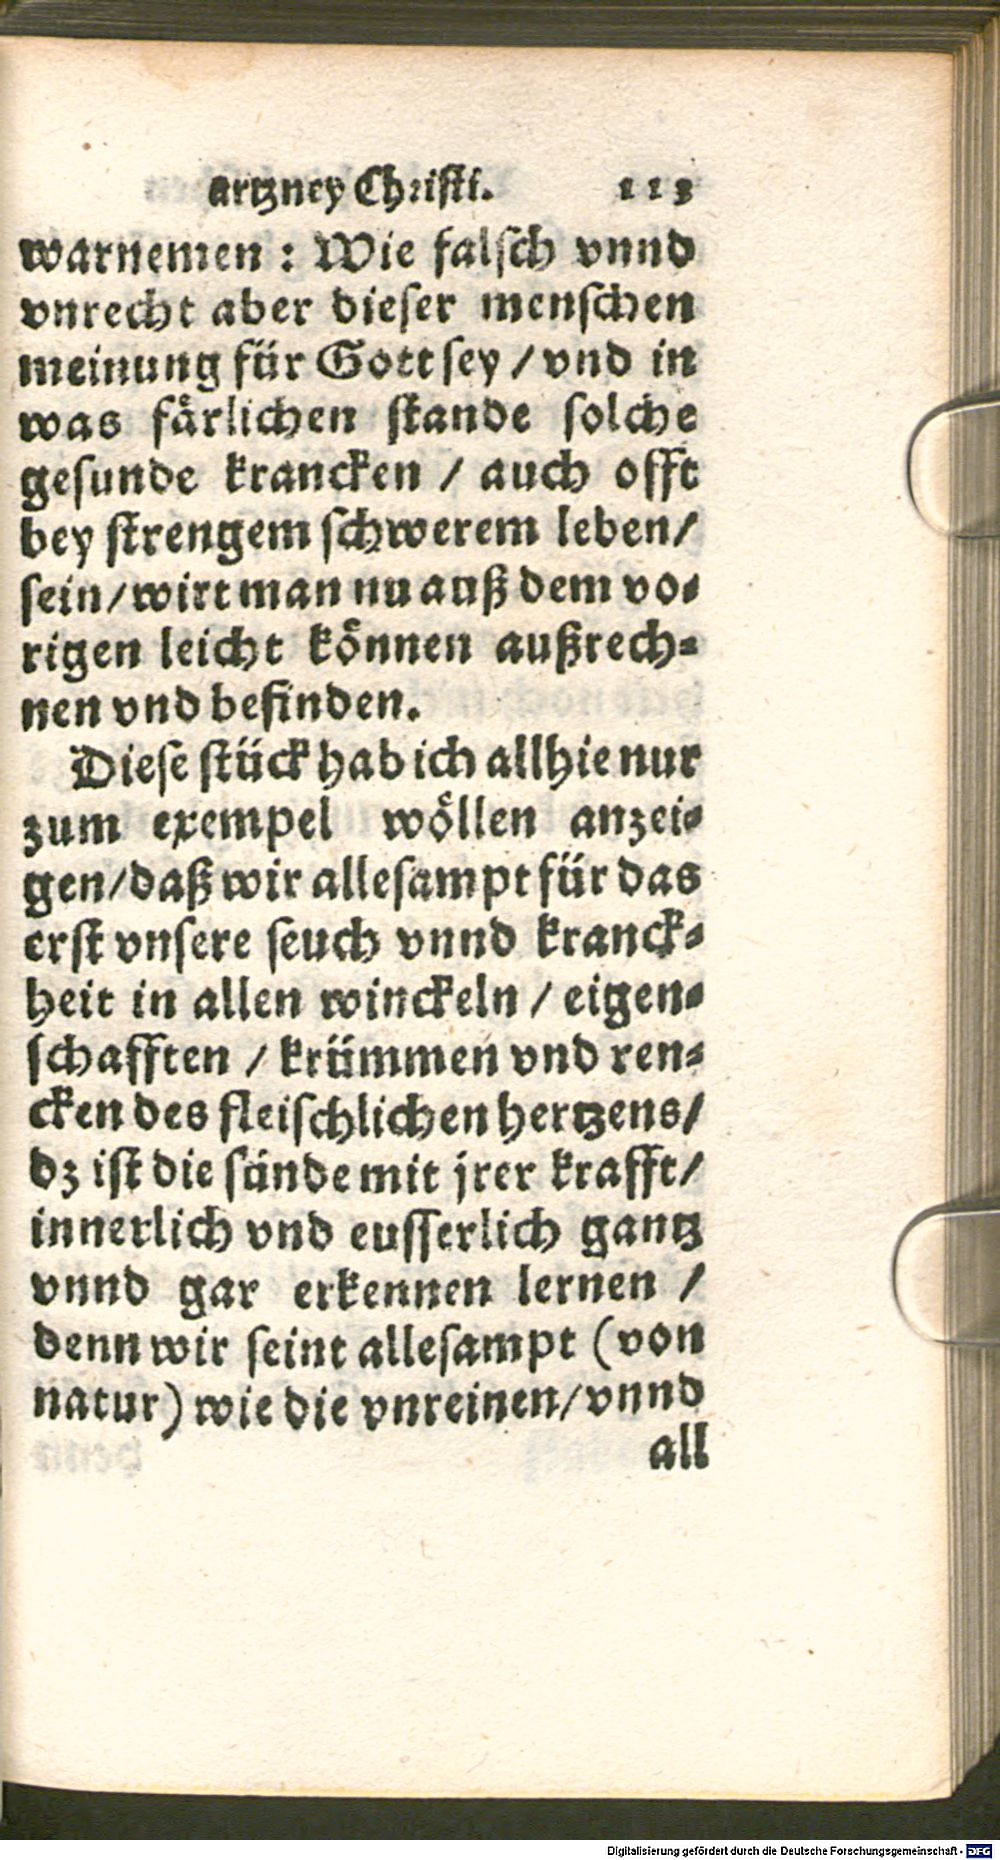 artzney Christi. 113
warnemen : Wie falsch vnnd
vnrecht aber dieser menschen
meinung für Gott sey / vnd in
was färlichen stande solche
gesunde krancken / auch offt
bey strengem schwerem leben/
sein/wirt man nu auß dem vo-
rigen leicht können außrech-
nen vnd befinden.
Diese stück hab ich allhie nur
zum exempel wöllen anzei-
gen/daß wir allesampt für das
erst vnsere seuch vnnd kranck-
heit in allen winckeln / eigen-
schafften / krümmen vnd ren-
cken des fleischlichen hertzens/
dz ist die sünde mit jrer krafft/
innerlich vnd eusserlich gantz
vnnd gar erkennen lernen /
denn wir seint allesampt (von
natur) wie die vnreinen/vnnd
all
Digitalisierung gefördert durch die Deutsche Forschungsgemeinschaft - DFG